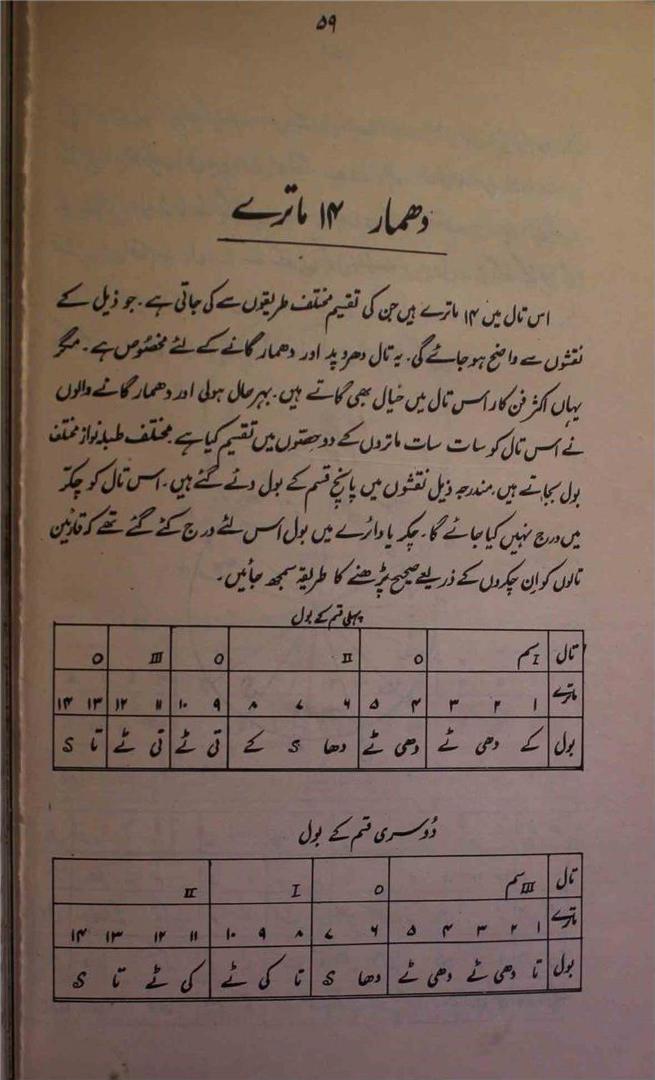 ۵۹
دھمار ۱۴ ماترے
اس تال میں ۱۴ ماترے ہیں جن کی تقیم مختلف طریقوں سے کی جاتی ہے۔ جو ذیل کے
نقشوں سے واضح ہو جائے گی۔ یہ تال دھرو پد اور دھمار گانے کے لئے مخصوص ہے۔ مگر
یہاں اکثر فن کار اس تال میں خیال بھی گاتے ہیں۔ بہر حال ہولی اور دھمار گانے والوں
نے اس تال کو سات سات ماتروں کے دو حصّوں میں تقسیم کیا ہے۔ مختلف طبلہ نواز مختلف
بول بجاتے ہیں۔ مندرجہ ذیل نقشوں میں پانچ قسم کے بول دئے گئے ہیں۔ اس تال کو چکر
میں درج نہیں کیا جائے گا۔ چکر یا دائرے میں بول اس لئے درج کئے گئے تھے کہ قارئین
تالوں کو ان چکروں کے ذریعے صحیح پڑھنے کا طریقہ سمجھ جائیں۔
پہلی قسم کے بول
تال I سم O II O III O
ماترے ۱ ۲ ۳ ۴ ۵ ۶ ۷ ۸ ۹ ۱۰ ۱۱ ۱۲ ۱۳ ۱۴
بول کے دھی ٹے دھی ٹے دھا S کے تی ٹے تی ٹے تا S
دُوسری قسم کے بول
تال III سم O I II
ماترے ۱ ۲ ۳ ۴ ۵ ۶ ۷ ۸ ۹ ۱۰ ۱۱ ۱۲ ۱۳ ۱۴
بول تا دھی ٹے دھی ٹے دھا S تا کی ٹے کی ٹے تا S